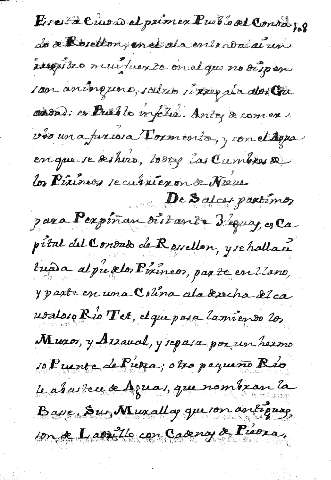 Es esta Ciudad el primer Pueblo del Conda- 108
do de Rosellon, en el ala entrada ai un
registro mui fuerte en al que no dispen
san a ninguno, sea o
es Pueblo infeliz. Antes de comer
vino una furiosa Tormenta, y con el Agua
en que se deshizo, todas las Cumbres de
los Pirineos se cubrieron de Nieve.
De Salces partimos
para Perpiñan distante 3 leguas, es Ca-
pital del Condado de Rosellon, y se halla si
tuada al pie de los Pirineos, parte en llano,
y parte en una Colina a la derecha del ca
udaloso Rio Tet, el que pasa lamiendo los
Muros, y Arraval, y se pasa por un hermo
so Puente de Piedra; otro pequeño Rio
le abastece de Aguas, que nombran la
Base. Sus Murallas que son antiguas,
son de Ladrillo con Cadenas de Piedra,